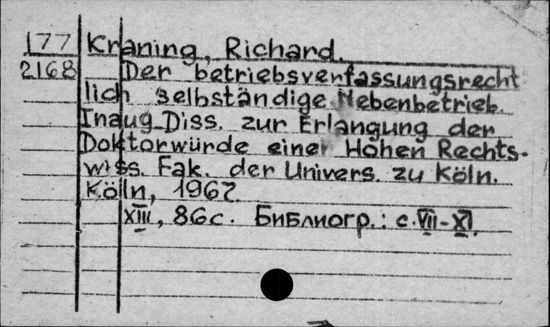 177 Kraning, Richard.
2168 Der betriebsverfassungsrecht
lich selbständige Nebenbetrieb.
Inaug-Diss. zur Erlangung der
Doktorwürde einer Hohen Rechts-
wiss. Fak. der Univers. zu Köln.
Köln, 1967.
XIII, 86 с. Библиогр.: с. VII-XI.